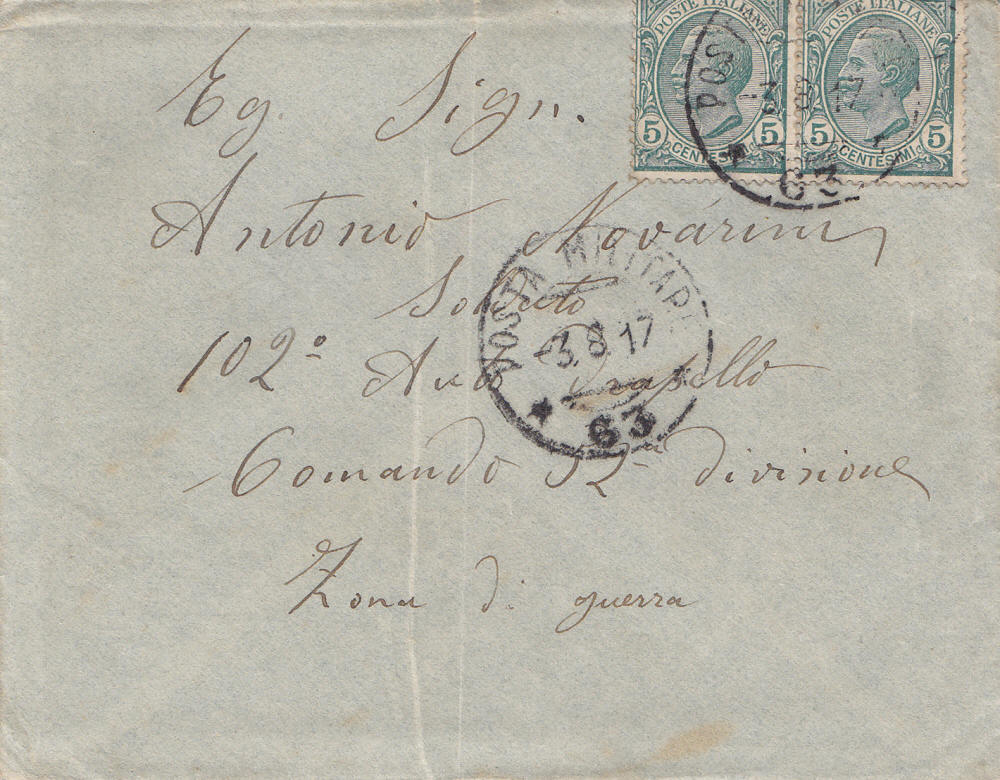 POSTE ITALIANE POSTE ITALIANE
5 CENTESIMI 5 5 CENTESIMI 5
POS
-3 8 17
63
Eg. Sign.
Antonio Novarini
Soldato
102° Auto Drapello
Comando 52ª divisione
Zona di guerra
POSTA MILITARE
-3.8.17
63